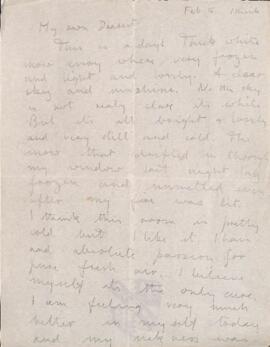 Feb 5.
My own Dearest.
This is a day! Thick white
snow every where, very frozen
and light and lovely. A clear
sky and sunshine. No the sky
is not really clear its white
But its all bright & lovely
and very still and cold. The
snow that drifted in through
my window last night lay
frozen and unmelted even
after my fire was lit.
I think this room is pretty
cold but I like it I have
an absolute passion for
pure fresh air. I believe
myself its the only cure.
I am feeling very much
better in myself today
and my sickness was